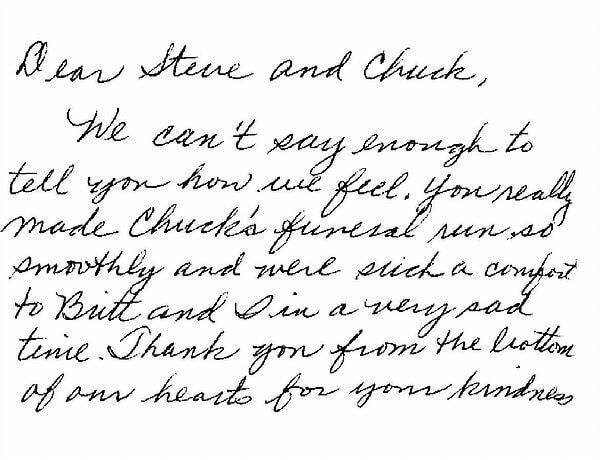 Dear Steve and Chuck,
We can't say enough to
tell you how we feel. You really
made Chuck's funeral run so
smoothly and were such a comfort
to Britt and I in a very sad
time. Thank you from the bottom
of our hearts for your kindness